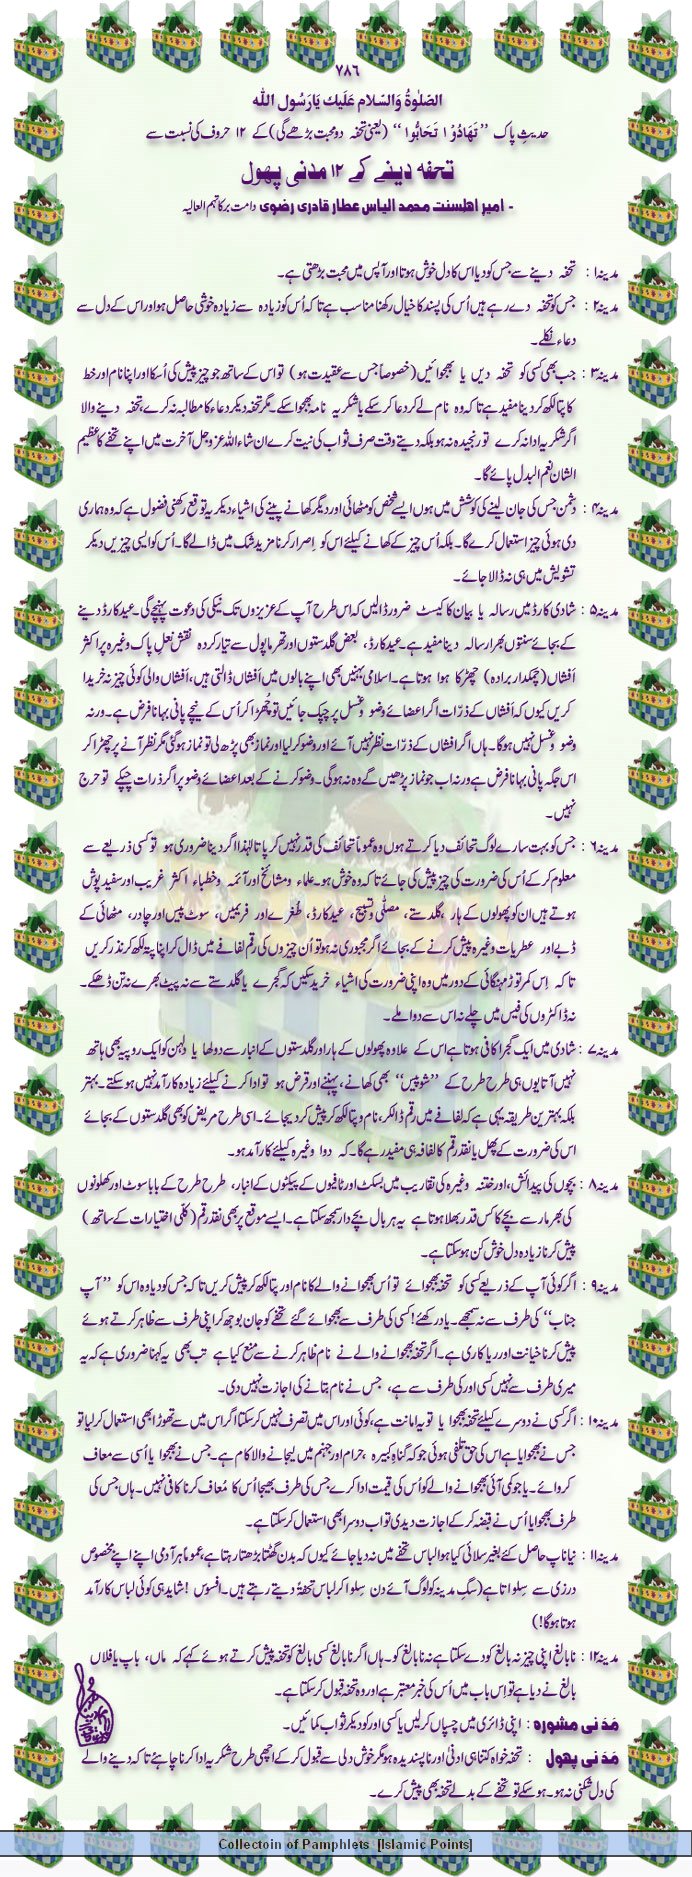 ۷۸۶
الصّلوٰةُ وَالسّلام عَلَيكَ يَارَسُول الله
حدیثِ پاک ’’تَهَادُوْا تَحَابُّوا‘‘ (یعنی تحفہ دو محبت بڑھے گی) کے ۱۲ حروف کی نسبت سے
تحفہ دینے کے ۱۲ مدنی پھول
- امیر اهلسنت محمد الیاس عطار قادری رضوی دامت برکاتہم العالیہ
مدینہ۱ : تحفہ دینے سے جس کو دیا اس کا دل خوش ہوتا اور آپس میں محبت بڑھتی ہے۔
مدینہ۲ : جس کو تحفہ دے رہے ہیں اُس کی پسند کا خیال رکھنا مناسب ہے تاکہ اُس کو زیادہ سے زیادہ خوشی حاصل ہو اور اس کے دل سے
دعاء نکلے۔
مدینہ۳ : جب بھی کسی کو تحفہ دیں یا بھجوائیں (خصوصاً جس سے عقیدت ہو) تو اس کے ساتھ جو چیز پیش کی اُسکا اور اپنا نام اور خط
کا پتا لکھ کر دینا مفید ہے تاکہ وہ نام لے کر دعا کر سکے یا شکریہ نامہ بھجوا سکے۔ مگر تحفہ دیکر دعاء کا مطالبہ نہ کرے، تحفہ دینے والا
اگر شکریہ ادا نہ کرے تو رنجیدہ نہ ہو بلکہ دیتے وقت صرف ثواب کی نیت کرے ان شاء اللہ عزوجل آخرت میں اپنے تحفے کا عظیم
الشان نعم البدل پائے گا۔
مدینہ۴ : دشمن جس کی جان لینے کی کوشش میں ہوں ایسے شخص کو مٹھائی اور دیگر کھانے پینے کی اشیاء دیکر یہ توقع رکھنی فضول ہے کہ وہ ہماری
دی ہوئی چیز استعمال کرے گا۔ بلکہ اُس چیز کے کھانے کیلئے اس کو اِصرار کرنا مزید شک میں ڈالے گا۔ اُس کو ایسی چیزیں دیکر
تشویش میں ہی نہ ڈالا جائے۔
مدینہ۵ : شادی کارڈ میں رسالہ یا بیان کا کیسٹ ضرور ڈالیں کہ اس طرح آپ کے عزیزوں تک نیکی کی دعوت پہنچے گی۔ عید کارڈ دینے
کے بجائے سنتوں بھرا رسالہ دینا مفید ہے۔ عید کارڈ، بعض گلدستوں اور تھرماپول سے تیار کردہ نقشِ نعلِ پاک وغیرہ پر اکثر
اَفشاں (چمکدار برادہ) چھڑکا ہوا ہوتا ہے۔ اسلامی بہنیں بھی اپنے بالوں میں اَفشاں ڈالتی ہیں، اَفشاں والی کوئی چیز نہ خریدا
کریں کیوں کہ اَفشاں کے ذرّات اگر اعضائے وضو و غسل پر چپک جائیں تو چھڑا کر اُس کے نیچے پانی بہانا فرض ہے۔ ورنہ
وضو و غسل نہیں ہوگا۔ ہاں اگر افشاں کے ذرّات نظر نہیں آئے اور وضو کر لیا اور نماز بھی پڑھ لی تو نماز ہو گئی مگر نظر آنے پر چھڑا کر
اس جگہ پانی بہانا فرض ہے ورنہ اب جو نماز پڑھیں گے وہ نہ ہوگی۔ وضو کرنے کے بعد اعضائے وضو پر اگر ذرات چپکے تو حرج
نہیں۔
مدینہ۶ : جس کو بہت سارے لوگ تحائف دیا کرتے ہوں وہ عموماً تحائف کی قدر نہیں کر پاتا لہٰذا اگر دینا ضروری ہو تو کسی ذریعے سے
معلوم کر کے اُس کی ضرورت کی چیز پیش کی جائے تاکہ وہ خوش ہو۔ علماء و مشائخ اور آئمہ و خطباء اکثر غریب اور سفید پوش
ہوتے ہیں ان کو پھولوں کے ہار، گلدستے، مصلّٰی و تسبیح، عید کارڈ، طُغرے اور فریمیں، سوٹ پیس اور چادر، مٹھائی کے
ڈبے اور عطریات وغیرہ پیش کرنے کے بجائے اگر مجبوری نہ ہو تو اُن چیزوں کی رقم لفافے میں ڈال کر اپنا پتہ لکھ کر نذر کریں
تاکہ اِس کمر توڑ مہنگائی کے دور میں وہ اپنی ضرورت کی اشیاء خرید سکیں کہ گجرے یا گلدستے سے نہ پیٹ بھرے نہ تن ڈھکے۔
نہ ڈاکٹروں کی فیس میں چلے نہ اس سے دوا ملے۔
مدینہ۷ : شادی میں ایک گجرا کافی ہوتا ہے اس کے علاوہ پھولوں کے ہار اور گلدستوں کے انبار سے دولھا یا دلہن کو ایک روپیہ بھی ہاتھ
نہیں آتا یوں ہی طرح طرح کے ’’شوپیس‘‘ بھی کھانے، پہننے اور قرض ہو تو ادا کرنے کیلئے زیادہ کار آمد نہیں ہو سکتے۔ بہتر
بلکہ بہترین طریقہ یہی ہے کہ لفافے میں رقم ڈالکر، نام و پتا لکھ کر پیش کر دیجائے۔ اسی طرح مریض کو بھی گلدستوں کے بجائے
اس کی ضرورت کے پھل یا نقد رقم کا لفافہ ہی مفید رہے گا۔ کہ دوا وغیرہ کیلئے کار آمد ہو۔
مدینہ۸ : بچوں کی پیدائش، اور ختنہ وغیرہ کی تقاریب میں بسکٹ اور ٹافیوں کے پیکٹوں کے انبار، طرح طرح کے بابا سوٹ اور کھلونوں
کی بھر مار سے بچے کا کس قدر بھلا ہوتا ہے یہ ہر بال بچے دار سمجھ سکتا ہے۔ ایسے موقع پر بھی نقد رقم (کُلّی اختیارات کے ساتھ)
پیش کرنا زیادہ دل خوش کن ہو سکتا ہے۔
مدینہ۹ : اگر کوئی آپ کے ذریعے کسی کو تحفہ بھجوائے تو اُس بھجوانے والے کا نام اور پتا لکھ کر پیش کریں تاکہ جس کو دیا وہ اس کو ’’آپ
جناب‘‘ کی طرف سے نہ سمجھے۔ یاد رکھئے! کسی کی طرف سے بھجوائے گئے تحفے کو جان بوجھ کر اپنی طرف سے ظاہر کرتے ہوئے
پیش کرنا خیانت اور ریا کاری ہے۔ اگر تحفہ بھجوانے والے نے نام ظاہر کرنے سے منع کیا ہے تب بھی یہ کہنا ضروری ہے کہ یہ
میری طرف سے نہیں کسی اور کی طرف سے ہے، جس نے نام بتانے کی اجازت نہیں دی۔
مدینہ۱۰ : اگر کسی نے دوسرے کیلئے تحفہ بھجوایا تو یہ امانت ہے، کوئی اور اس میں تصرف نہیں کر سکتا اگر اس میں سے تھوڑا بھی استعمال کر لیا تو
جس نے بھجوایا ہے اس کی حق تلفی ہوئی جو کہ گناہِ کبیرہ، حرام اور جہنم میں لیجانے والا کام ہے۔ جس نے بھجوایا اُسی سے معاف
کروائے۔ یا جو کمی آئی بھجوانے والے کو اُس کی قیمت ادا کرے جس کی طرف بھیجا اُس کا مُعاف کرنا کافی نہیں۔ ہاں جس کی
طرف بھجوایا اُس نے قبضہ کر کے اجازت دیدی تو اب دوسرا بھی استعمال کر سکتا ہے۔
مدینہ۱۱ : نیا ناپ حاصل کئے بغیر سلائی کیا ہوا لباس تحفے میں نہ دیا جائے کیوں کہ بدن گھٹتا بڑھتا رہتا ہے، عموماً ہر آدمی اپنے اپنے مخصوص
درزی سے سِلواتا ہے (سگِ مدینہ کو لوگ آئے دن سِلوا کر لباس تحفۃً دیتے رہتے ہیں۔ افسوس! شاید ہی کوئی لباس کار آمد
ہوتا ہوگا!)
مدینہ۱۲ : نابالغ اپنی چیز نہ بالغ کو دے سکتا ہے نہ نابالغ کو۔ ہاں اگر نابالغ کسی بالغ کو تحفہ پیش کرتے ہوئے کہے کہ ماں، باپ یا فلاں
بالغ نے دیا ہے تو اِس باب میں اُس کی خبر معتبر ہے اور وہ تحفہ قبول کر سکتا ہے۔
مَدَنی مشورہ : اپنی ڈائری میں چسپاں کر لیں یا کسی اور کو دیکر ثواب کمائیں۔
مَدَنی پھول : تحفہ خواہ کتنا ہی ادنیٰ اور ناپسندیدہ ہو مگر خوش دلی سے قبول کر کے اچھی طرح شکریہ ادا کرنا چاہئے تاکہ دینے والے
کی دل شکنی نہ ہو۔ ہو سکے تو تحفے کے بدلے تحفہ بھی پیش کرے۔
Collectoin of Pamphlets [Islamic Points]